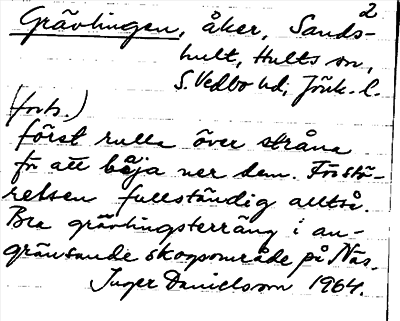 2
Grävlingen, åker, Sands-
hult, Hults sn,
S. Vedbo hd, Jönk. l.
(forts.)
först rulla över stråna
för att böja ner dem. Förstö-
relsen fullständig alltså.
Bra grävlingsterräng i an-
gränsande skogsområde på Näs.
Inger Danielsson 1964.